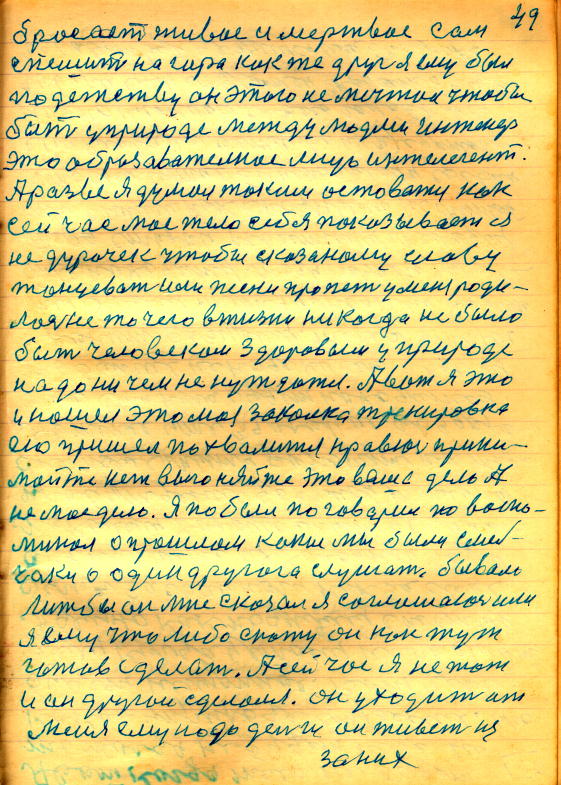 49
бросает живое и мертвое сам
спешит на гора как же друг я ему был
по детству он этого не мечтал чтобы
быт у природе между людми Инженер
это образавателное лицо интелегент.
А разве я думал таким оставатся как
сей час мое тело себя показывается
не дурачек чтобы сказаному слову
танцеват или песни пропет у меня роди-
лося не то чего в жизни никогда не было
быт человеком здоровым у природе
надо ни чем не нуждатся. А вот я это
и нашел это моя закалка тренировка
ею пришел похвалится нравюс прини-
майте нет выгоняйте это ваше дело А
не мое дело. Я побыл поговарил по воспо-
минал о прошлом какие мы были смел-
чаки о один другога слушат. бывало
лиш бы он мне сказал я соглошаюс или
я ему что либо скажу он как тут
готов сделат. А сей час я не тот
и он другой сделался. он уходит от
меня ему надо денги он живет из
за них